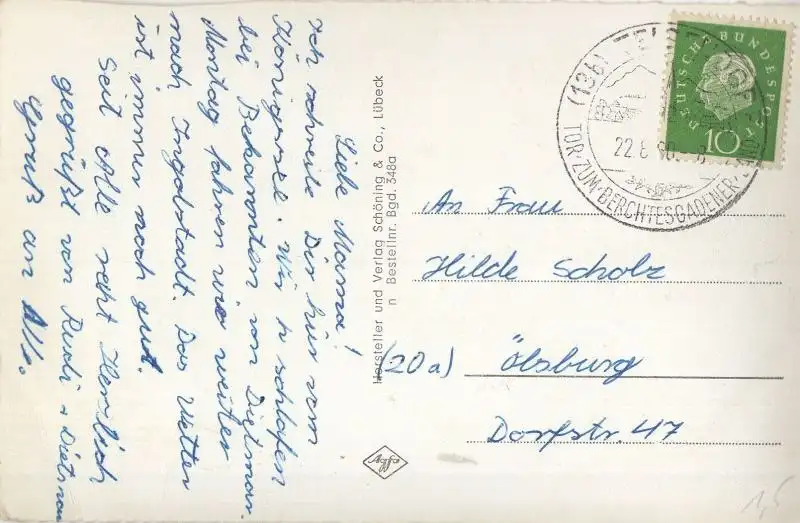 Liebe Mama!
Ich schreibe Dir hier vom
Königssee. Wir schlafen
bei Bekannten von Dietmar.
Montag fahren wir weiter
nach Ingolstadt. Das Wetter
ist immer noch gut.
Seit Alle recht Herzlich
gegrüßt von Rudi + Dietmar
Gruß an Alle.
Hersteller und Verlag Schöning & Co., Lübeck
n Bestellnr. Bgd. 348a
Agfa
DEUTSCHE BUNDESPOST
10
(13b)
22.8.60
TOR·ZUM·BERCHTESGADENER·LAND
An Frau
Hilde Scholz
(20a) Ölsburg
Dorfstr. 47
1,5